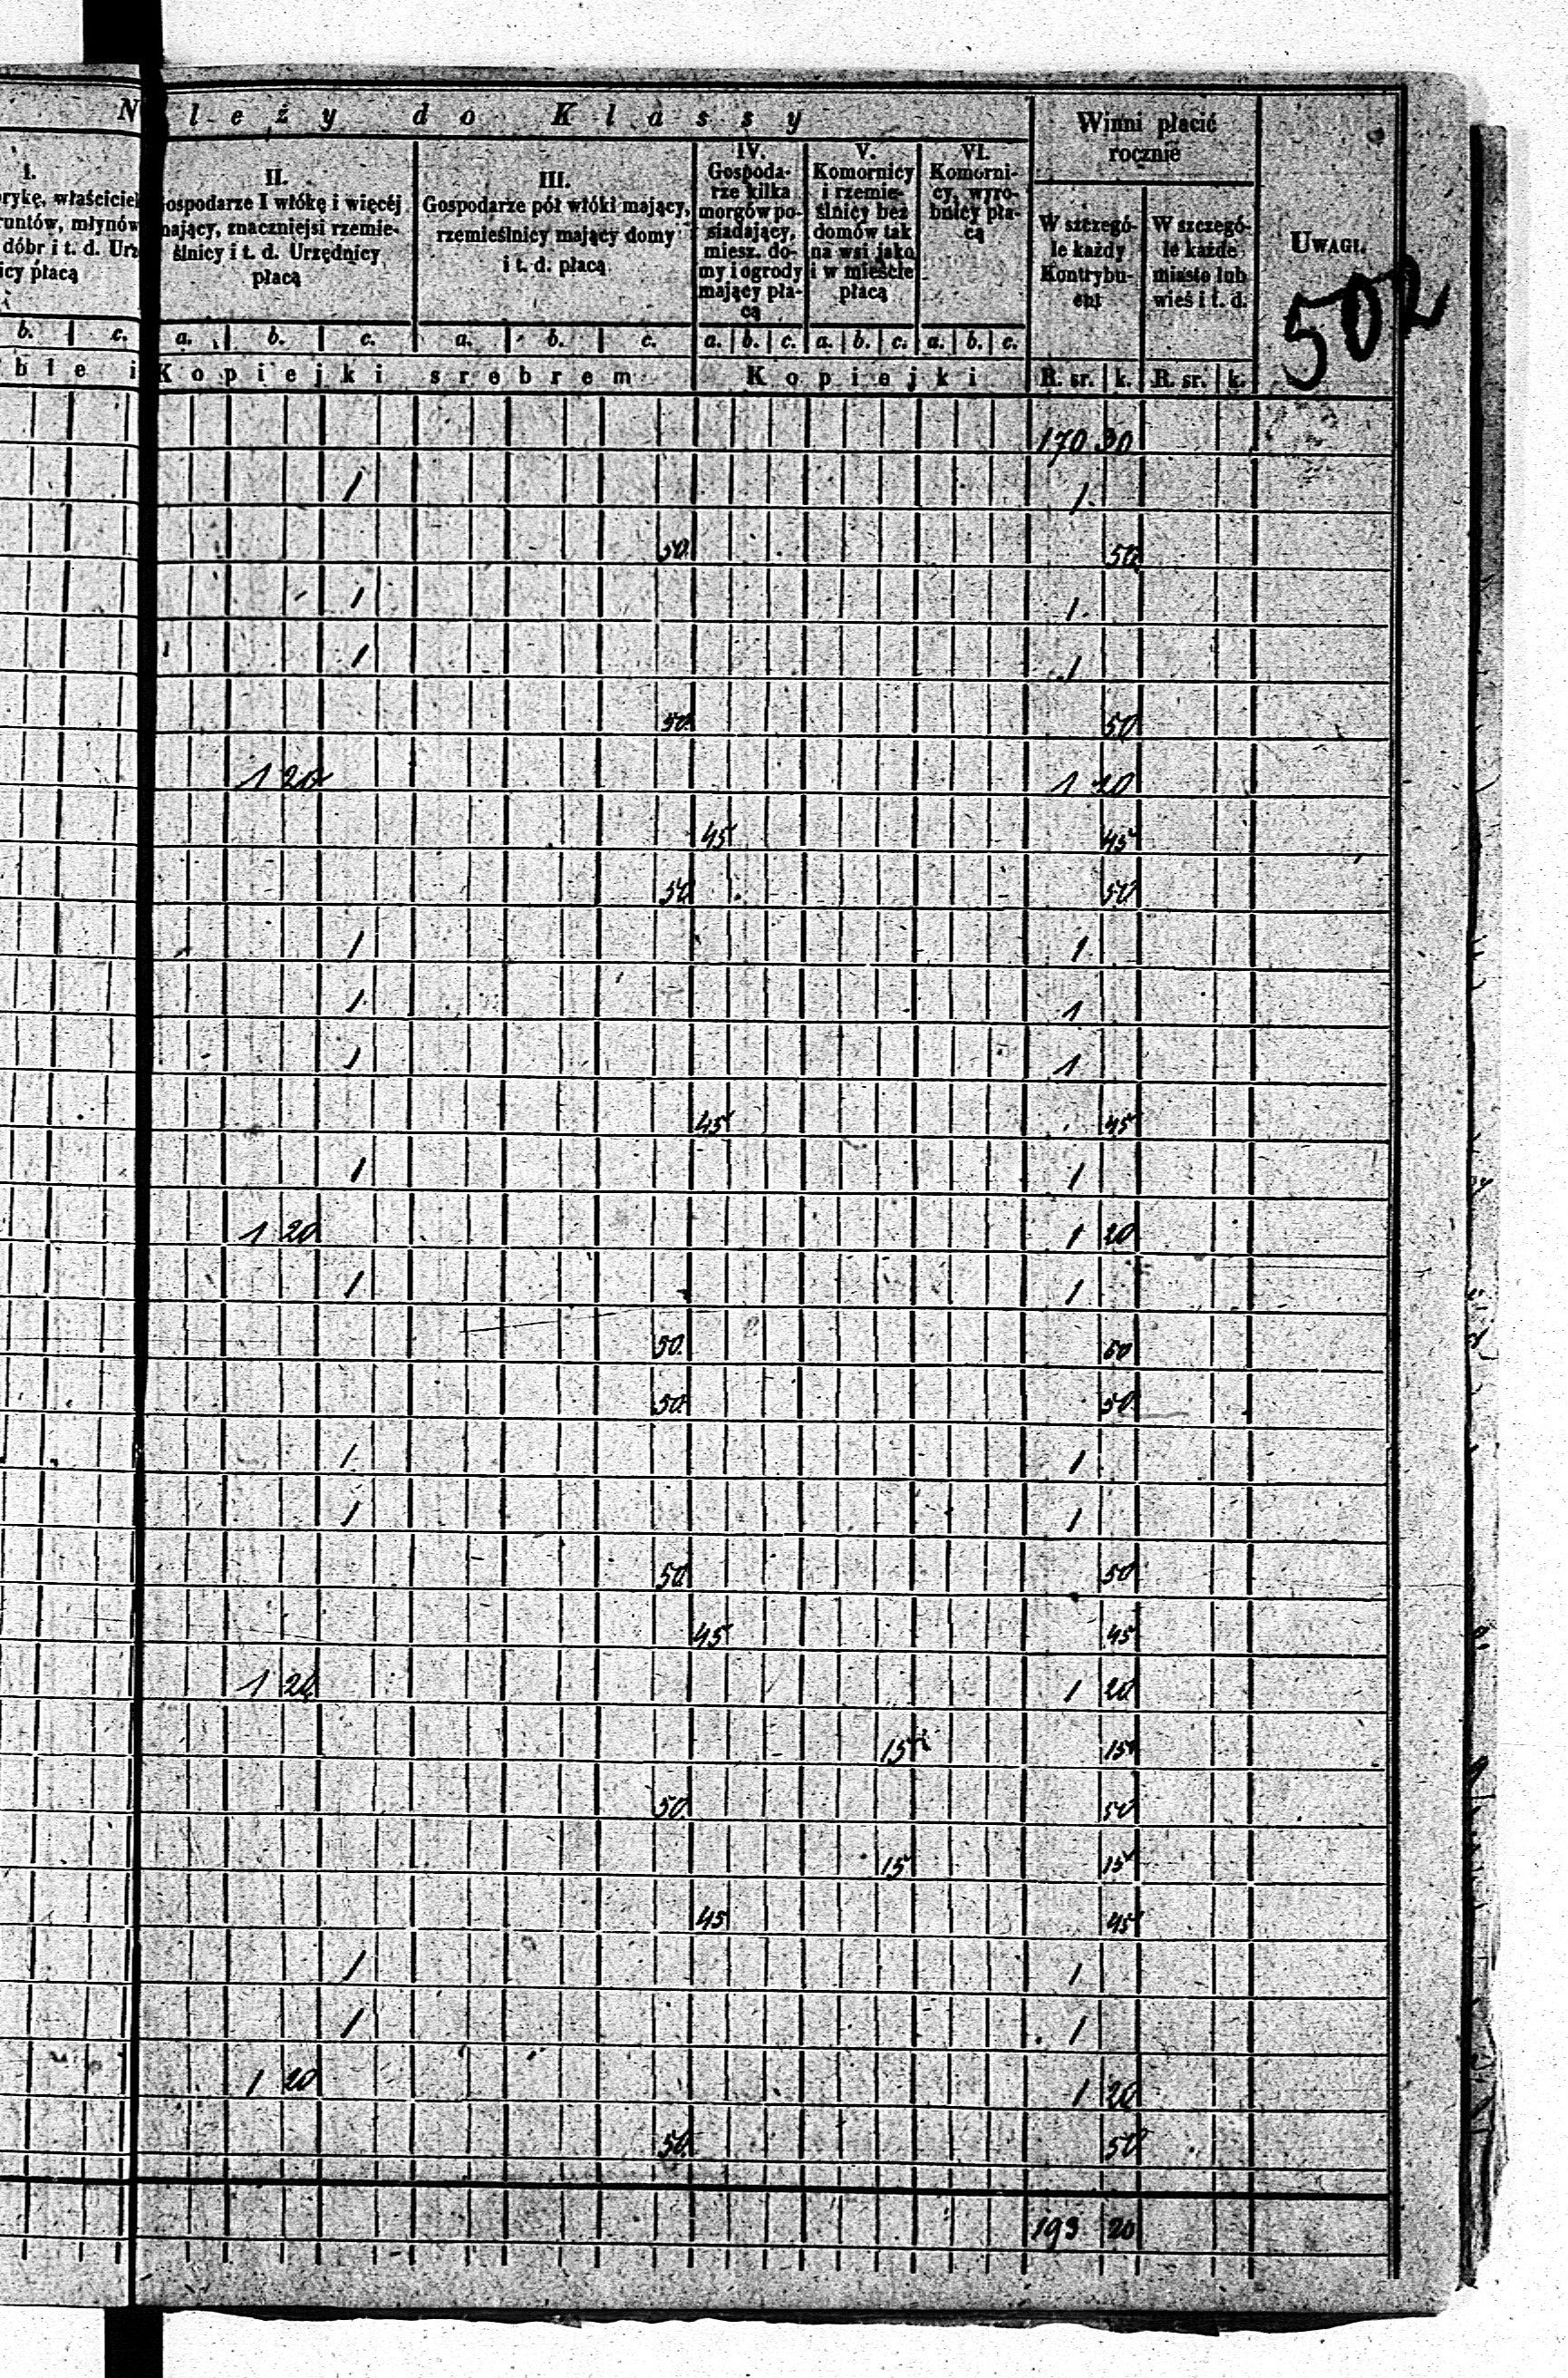 N leży do Klassy
Winni płacić
rocznie
UWAGI.
502
I.
rykę, właściciel
runtów, młynów
dóbr i t. d. Urz
icy płacą
II.
ospodarze I włókę i więcéj
mający, znaczniejsi rzemie-
ślnicy i t. d. Urzędnicy
płacą
III.
Gospodarze pół włóki mający,
rzemieślnicy mający domy
i t. d. płacą
IV.
Gospoda-
rze kilka
morgów po-
siadający,
miesz. do-
my i ogrody
mający pła-
cą
V.
Komornicy
i rzemie-
ślnicy bez
domów tak
na wsi jako
i w mieście
płacą
VI.
Komorni-
cy, wyro-
bnicy pła-
cą
W szczegó-
le każdy
Kontrybu-
ent
W szczegó-
le każde
miasto lub
wieś i t. d.
b. c. a. b. c. a. b. c. a. b. c. a. b. c. a. b. c.
ble i Kopiejki srebrem Kopiejki R. sr. k. R. sr. k.
170 30
1 1
50 50
1 1
1 1
50 50
1 20 1 20
45 45
50 50
1 1
1 1
1 1
45 45
1 1
1 20 1 20
1 1
50 50
50 50
1 1
1 1
50 50
45 45
1 20 1 20
15 15
50 50
15 15
45 45
1 1
1 1
1 20 1 20
50 50
193 20